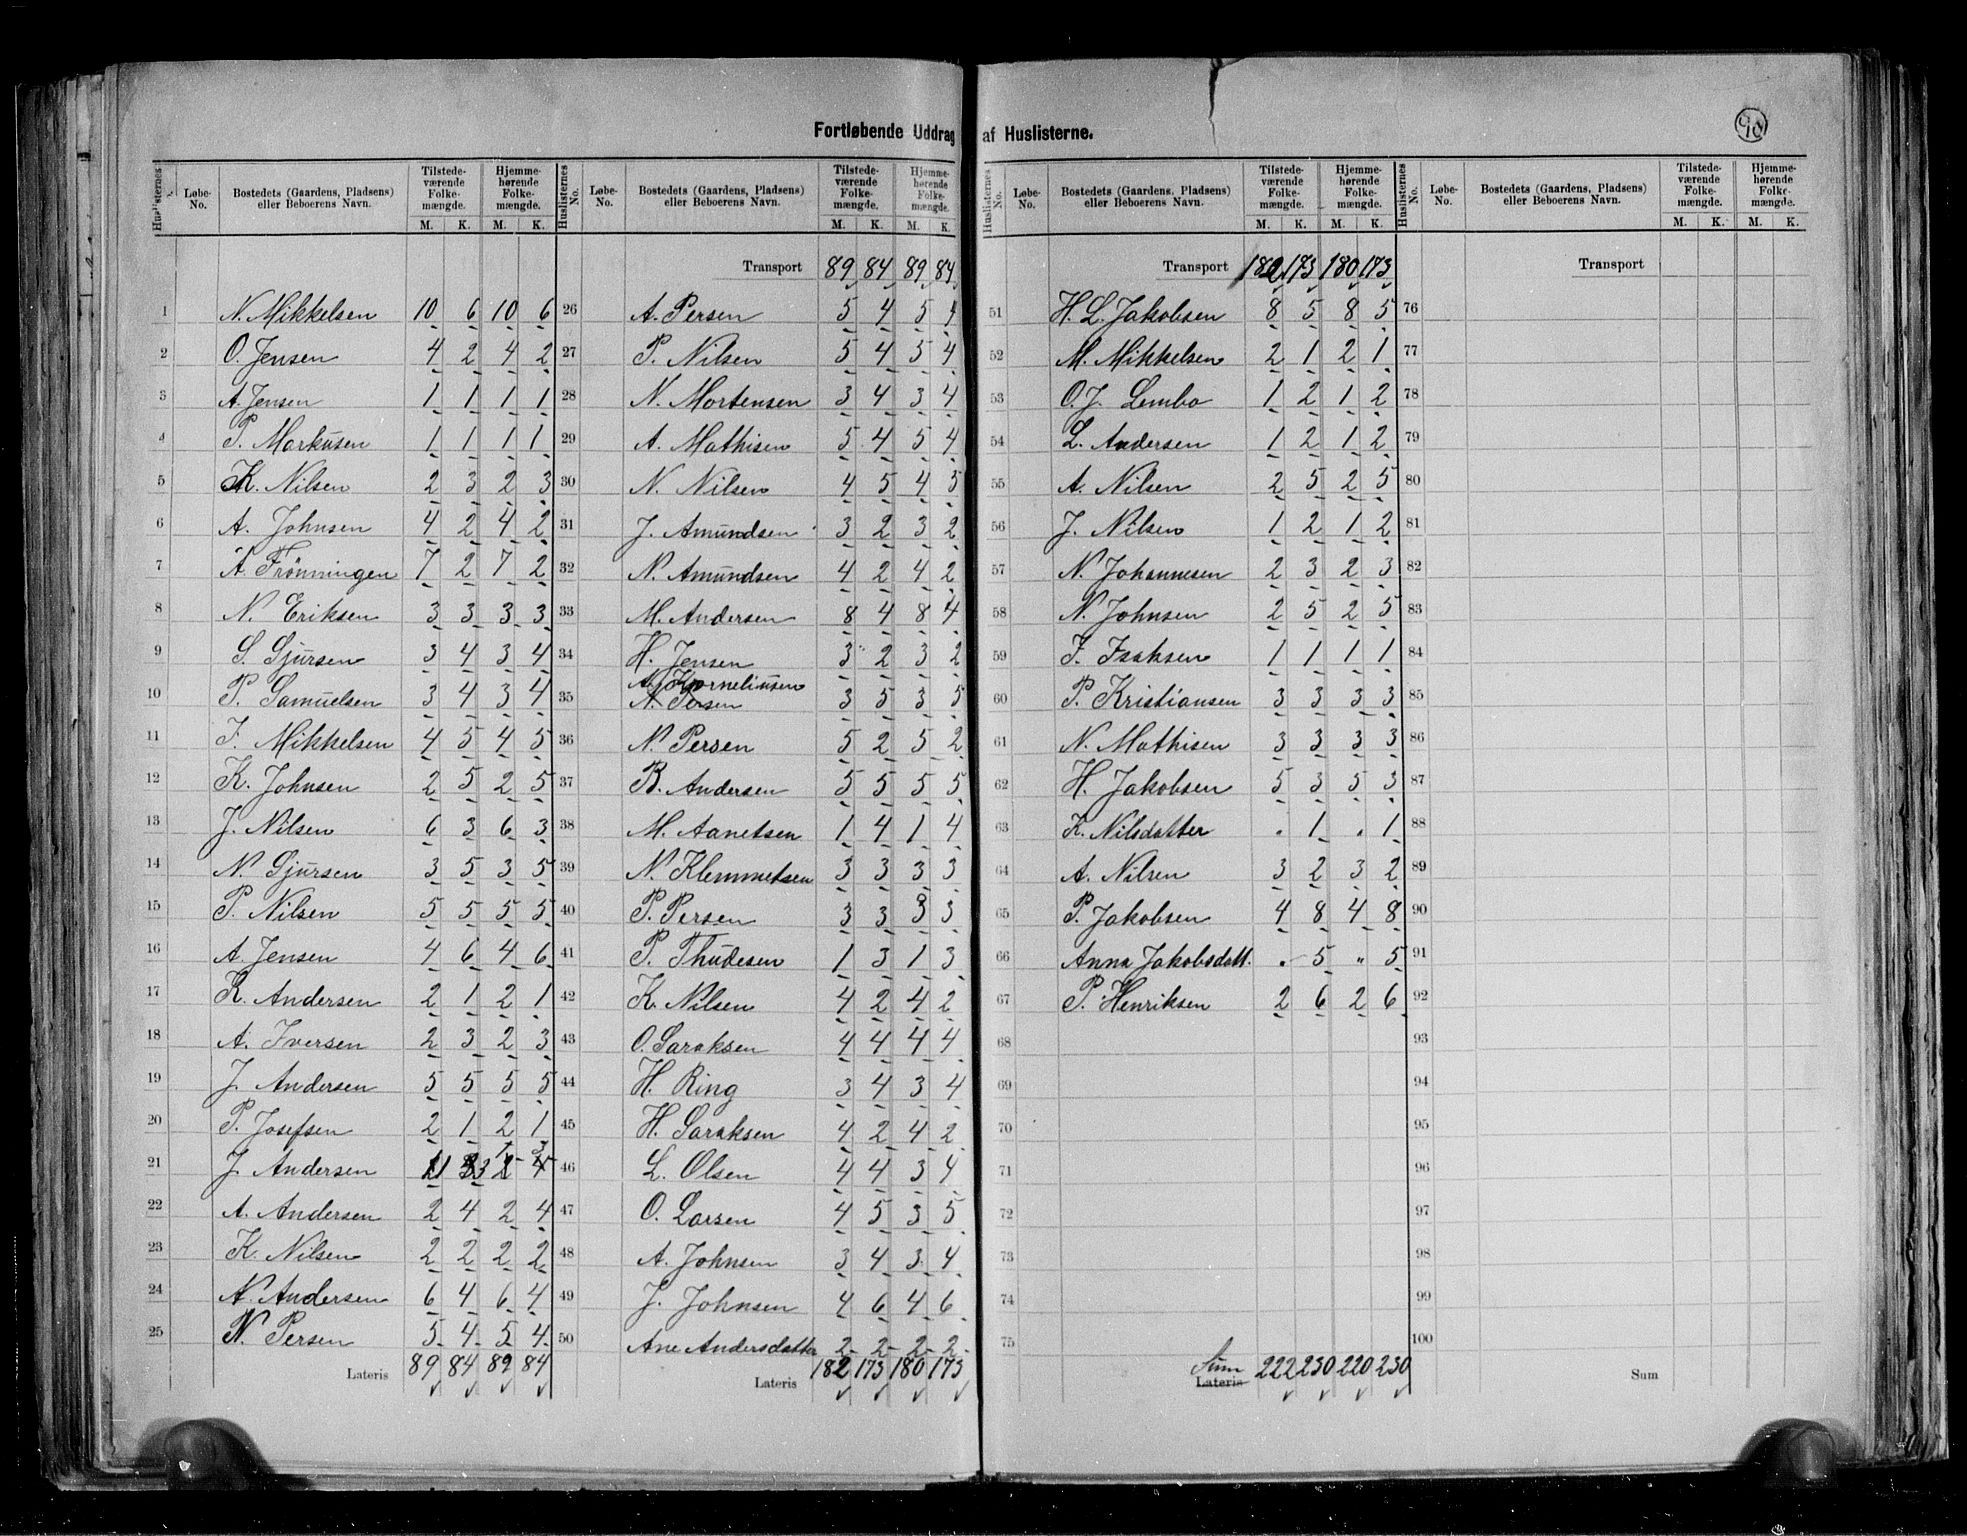 Fortløbende Uddrag af Huslisterne.
90
Huslisternes No. | Løbe-No. | Bostedets (Gaardens, Pladsens) eller Beboerens Navn. | Tilstedeværende Folkemængde. M. K. | Hjemmehørende Folkemængde. M. K.
1 N. Mikkelsen 10 6 10 6
2 O. Jensen 4 2 4 2
3 A. Jensen 1 1 1 1
4 P. Markusen 1 1 1 1
5 K. Nilsen 2 3 2 3
6 A. Johnsen 4 2 4 2
7 A. Frönningen 7 2 7 2
8 N. Eriksen 3 3 3 3
9 S. Sjursen 3 4 3 4
10 P. Samuelsen 3 4 3 4
11 I. Mikkelsen 4 5 4 5
12 K. Johnsen 2 5 2 5
13 J. Nilsen 6 3 6 3
14 N. Sjursen 3 5 3 5
15 P. Nilsen 5 5 5 5
16 A. Jensen 4 6 4 6
17 K. Andersen 2 1 2 1
18 A. Iversen 2 3 2 3
19 J. Andersen 5 5 5 5
20 P. Josefsen 2 1 2 1
21 J. Andersen 1 3 1 3
22 A. Andersen 2 4 2 4
23 K. Nilsen 2 2 2 2
24 N. Andersen 6 4 6 4
25 N. Persen 5 4 5 4
Lateris 89 84 89 84
Huslisternes No. | Løbe-No. | Bostedets (Gaardens, Pladsens) eller Beboerens Navn. | Tilstedeværende Folkemængde. M. K. | Hjemmehørende Folkemængde. M. K.
Transport 89 84 89 84
26 A. Persen 5 4 5 4
27 P. Nilsen 5 4 5 4
28 N. Mortensen 3 4 3 4
29 A. Mathisen 5 4 5 4
30 N. Nilsen 4 5 4 5
31 J. Amundsen 3 2 3 2
32 N. Amundsen 4 2 4 2
33 M. Andersen 8 4 8 4
34 H. Jensen 3 2 3 2
35 Korneliusen N. Persen 3 5 3 5
36 N. Persen 5 2 5 2
37 B. Andersen 5 5 5 5
38 M. Aanetsen 1 4 1 4
39 N. Klemmetsen 3 3 3 3
40 P. Persen 3 3 3 3
41 P. Thudesen 1 3 1 3
42 K. Nilsen 4 2 4 2
43 O. Saraksen 4 4 4 4
44 H. Ring 3 4 3 4
45 H. Saraksen 4 2 4 2
46 L. Olsen 4 4 3 4
47 O. Larsen 4 5 3 5
48 A. Johnsen 3 4 3 4
49 J. Johnsen 4 6 4 6
50 Ane Andersdatter 2 2 2 2
Lateris 182 173 180 173
Huslisternes No. | Løbe-No. | Bostedets (Gaardens, Pladsens) eller Beboerens Navn. | Tilstedeværende Folkemængde. M. K. | Hjemmehørende Folkemængde. M. K.
Transport 182 173 180 173
51 H. L. Jakobsen 8 5 8 5
52 M. Mikkelsen 2 1 2 1
53 O. J. Lembo 1 2 1 2
54 L. Andersen 1 2 1 2
55 A. Nilsen 2 5 2 5
56 J. Nilsen 1 2 1 2
57 N. Johannesen 2 3 2 3
58 N. Johnsen 2 5 2 5
59 I. Isaksen 1 1 1 1
60 P. Kristiansen 3 3 3 3
61 N. Mathisen 3 3 3 3
62 H. Jakobsen 5 3 5 3
63 K. Nilsdatter . 1 . 1
64 A. Nilsen 3 2 3 2
65 P. Jakobsen 4 8 4 8
66 Anna Jakobsdatt. . 5 " 5
67 P. Henriksen 2 6 2 6
68
69
70
71
72
73
74
75
Sum Lateris 222 230 220 230
Huslisternes No. | Løbe-No. | Bostedets (Gaardens, Pladsens) eller Beboerens Navn. | Tilstedeværende Folkemængde. M. K. | Hjemmehørende Folkemængde. M. K.
Transport
76
77
78
79
80
81
82
83
84
85
86
87
88
89
90
91
92
93
94
95
96
97
98
99
100
Sum